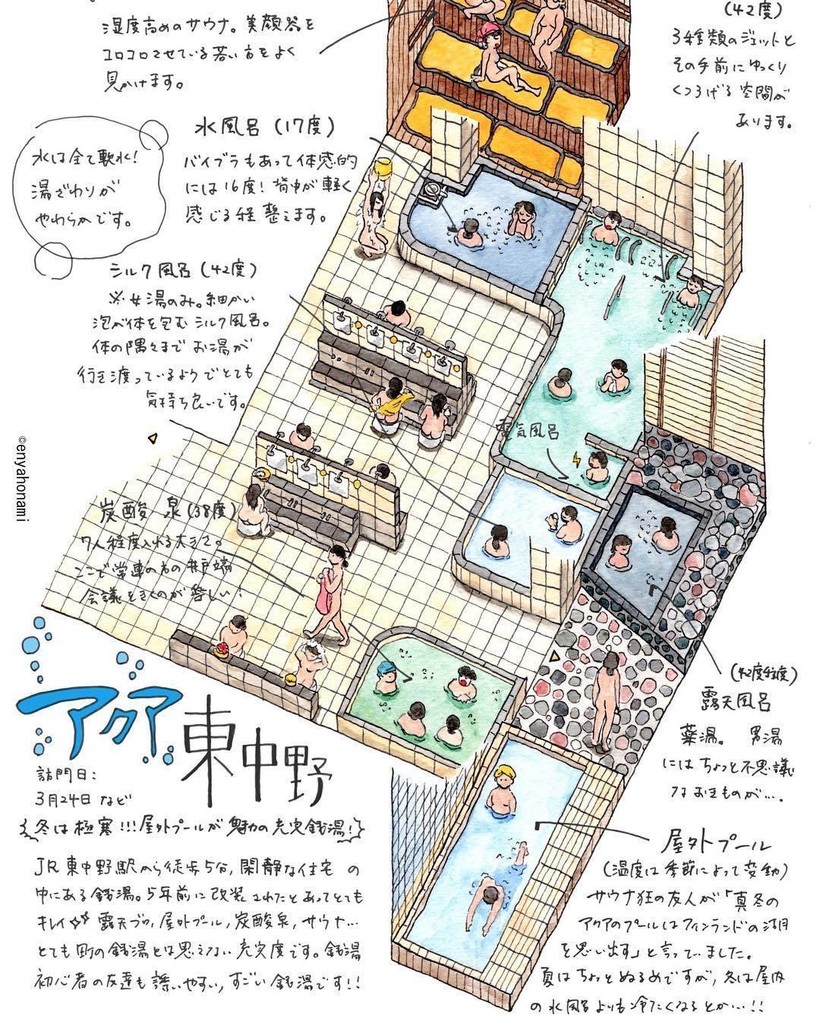 湿度高めのサウナ。美顔器を
コロコロさせている若い方をよく
見かけます。
(42度)
3種類のジェットと
その手前にゆっくり
くつろげる空間が
あります。
水風呂(17度)
バイブラもあって体感的
には16度!背中が軽く
感じる程整えます。
水は全て軟水!
湯ざわりが
やわらかです。
シルク風呂(42度)
※女湯のみ。細かい
泡が体を包むシルク風呂。
体の隅々までお湯が
行き渡っているようでとても
気持ち良いです。
電気風呂
©enyahonami
炭酸泉(38度)
7人程度入れる大きさ。
ここで常連の方の井戸端
会議をきくのが楽しい!
(42度程度)
露天風呂
薬湯。男湯
にはちょっと不思議
なおきものが…。
アクア東中野
訪問日:
3月24日など
冬は極寒!!!屋外プールが魅力の充実銭湯!
JR東中野駅から徒歩5分,閑静な住宅の
中にある銭湯。5年前に改装されたとあってとても
キレイ 露天ブロ,屋外プール,炭酸泉,サウナ…
とても町の銭湯とは思えない充実度です。銭湯
初心者の友達も誘いやすい,すごい銭湯です!!
屋外プール
(温度は季節によって変動)
サウナ狂の友人が「真冬の
アクアのプールはフィンランドの湖
を思い出す」と言っていました。
夏はちょっとぬるめですが,冬は屋内
の水風呂よりも冷たくなるとか…!!